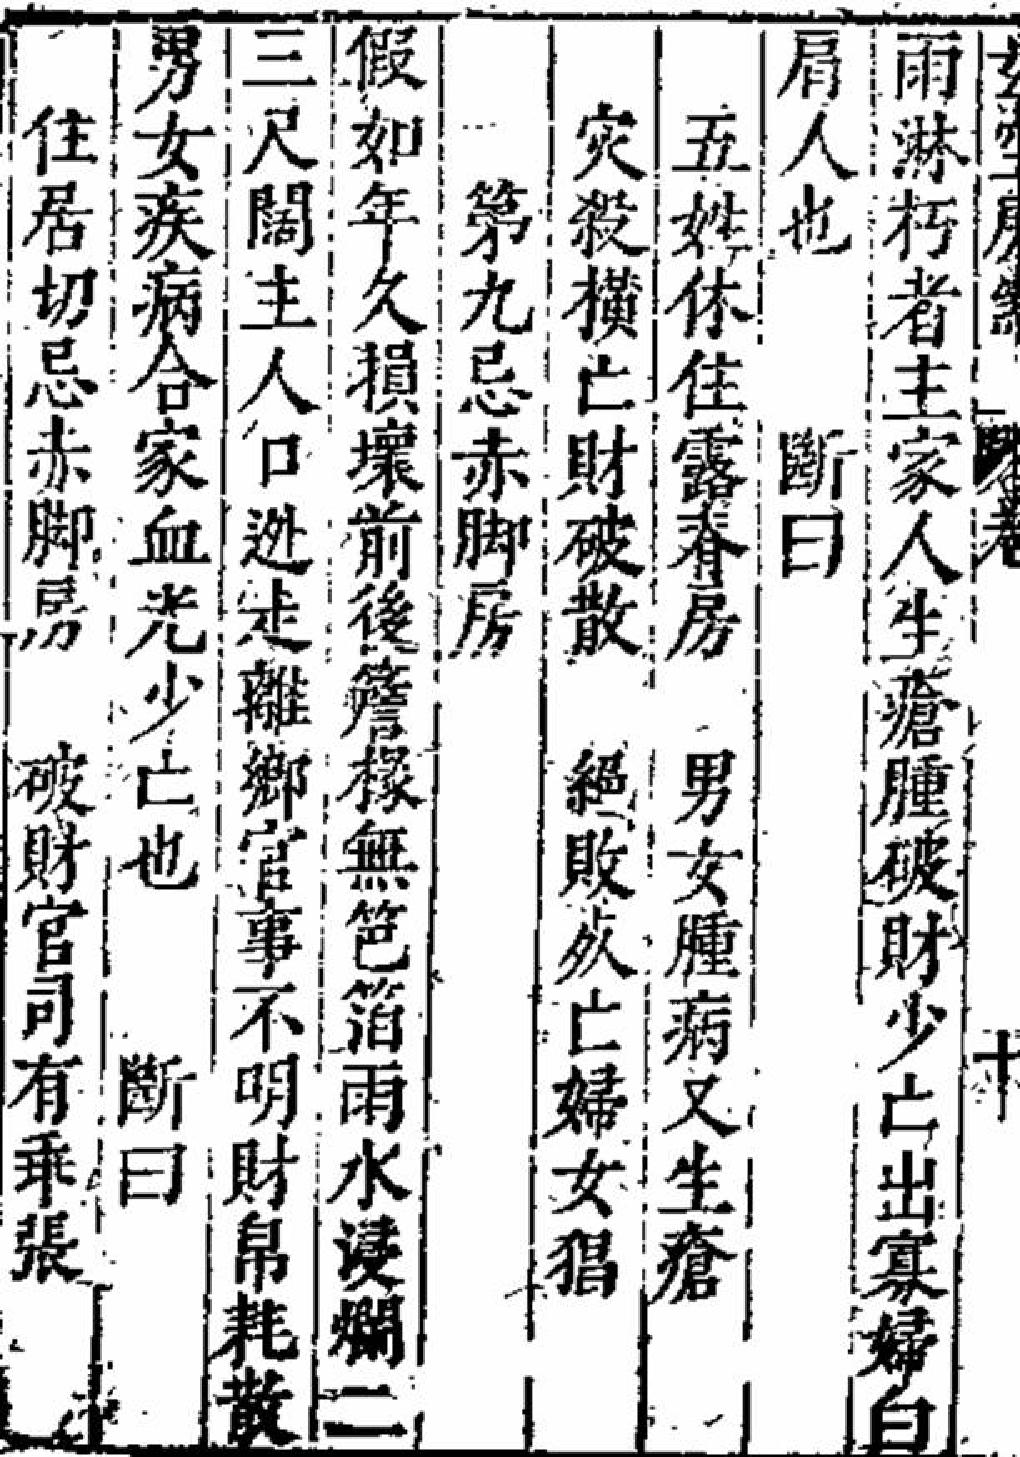 雨淋朽者主家人生瘡腫破財少亡出寡婦白
肩人也　斷曰
五姓休住露脊房　男女腫病又生瘡
灾殺橫亡財破散　絕敗死亡婦女猖
第九忌赤脚房
假如年久損壞前後簷椽無笆箔雨水浸爛二
三尺闊主人口迯走離鄉官事不明財帛耗散
男女疾病合家血光少亡也　斷曰
住居切忌赤脚房　破財官司有乖張